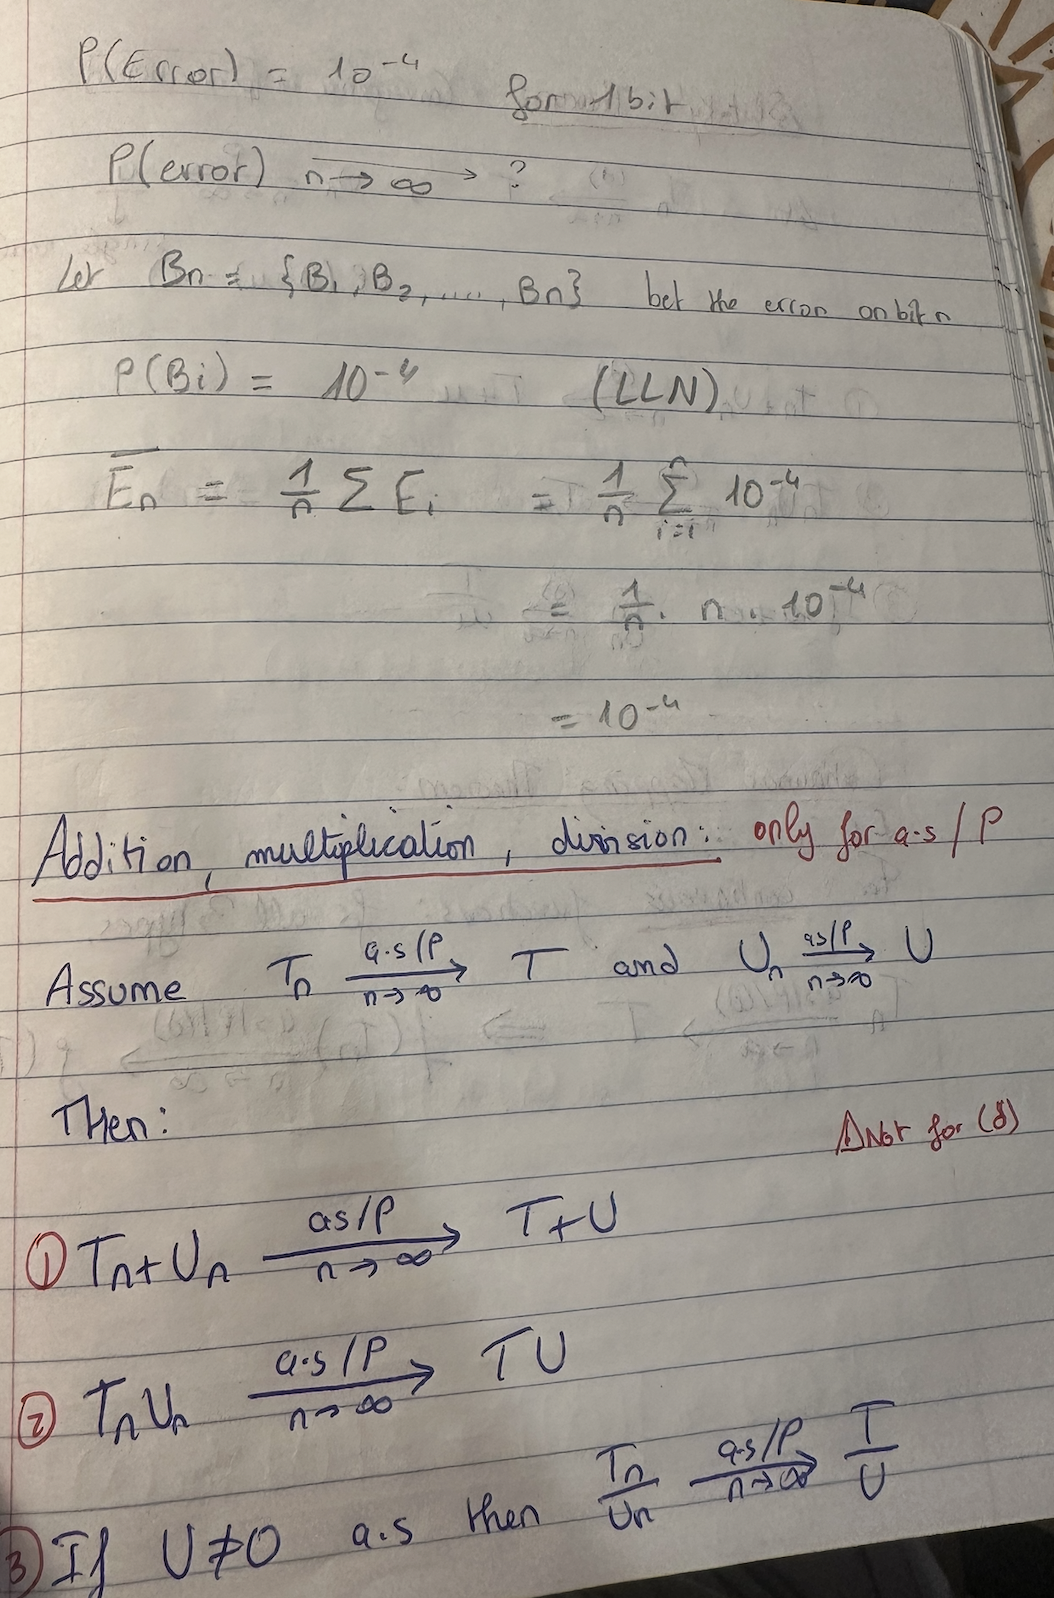 P(Error) = 10⁻⁴ for 1 bit
P(error) n→∞ → ?
Let Bn = {B₁, B₂, ...., Bn} bet the error on bit n
P(Bi) = 10⁻⁴ (LLN)
E̅n = 1/n Σ Ei = 1/n Σ_{i=i}^{n} 10⁻⁴
= 1/n . n . 10⁻⁴
= 10⁻⁴
Addition, multiplication, division: only for a.s/P
Assume Tn a.s/P→ n→∞ T and Un as/P→ n→∞ U
Then:
⚠ Not for (d)
① Tn+Un as/P→ n→∞ T+U
② TnUn a.s/P→ n→∞ TU
③ If U≠0 a.s then Tn/Un a.s/P→ n→∞ T/U